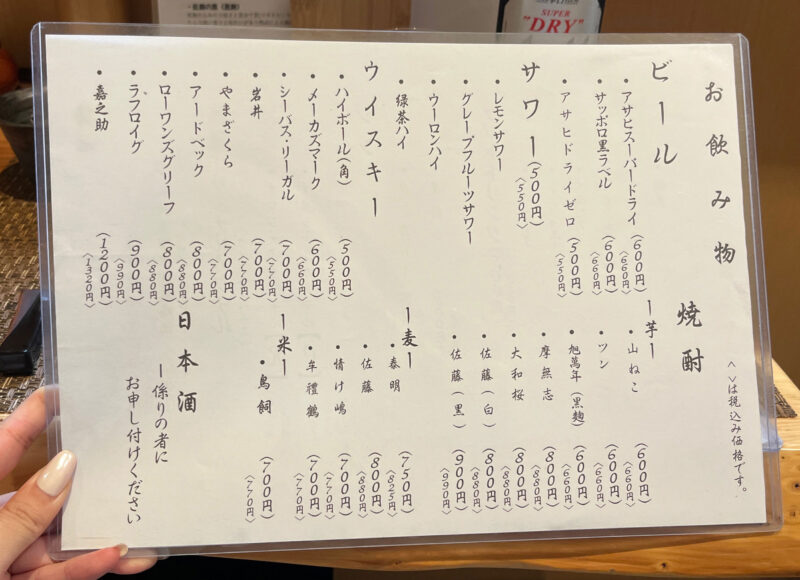 お飲み物
〈 〉は税込み価格です。
ビール
・アサヒスーパードライ (600円) 〈660円〉
・サッポロ黒ラベル (600円) 〈660円〉
・アサヒドライゼロ (500円) 〈550円〉
サワー (500円) 〈550円〉
・レモンサワー
・グレープフルーツサワー
・ウーロンハイ
・緑茶ハイ
ウイスキー
・ハイボール(角) (500円) 〈550円〉
・メーカズマーク (600円) 〈660円〉
・シーバス・リーガル (700円) 〈770円〉
・岩井 (700円) 〈770円〉
・やまざくら (700円) 〈770円〉
・アードベック (800円) 〈880円〉
・ローワンズグリーフ (800円) 〈880円〉
・ラフロイグ (900円) 〈990円〉
・嘉之助 (1200円) 〈1320円〉
焼酎
ー芋ー
・山ねこ (600円) 〈660円〉
・ツン (600円) 〈660円〉
・旭萬年(黒麹) (600円) 〈660円〉
・摩無志 (800円) 〈880円〉
・大和桜 (800円) 〈880円〉
・佐藤(白) (800円) 〈880円〉
・佐藤(黒) (900円) 〈990円〉
ー麦ー
・泰明 (750円) 〈825円〉
・佐藤 (800円) 〈880円〉
・情け嶋 (700円) 〈770円〉
・牟禮鶴 (700円) 〈770円〉
ー米ー
・鳥飼 (700円) 〈770円〉
日本酒
ー係りの者に
お申し付けください
SUPER
"DRY"